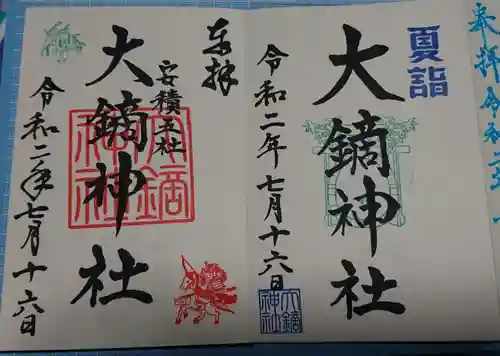 奉拝 令和二年
夏詣
大鏑神社
令和二年七月十六日
大鏑神社
奉拝
安積三社
大鏑神社
大鏑神社
令和二年七月十六日